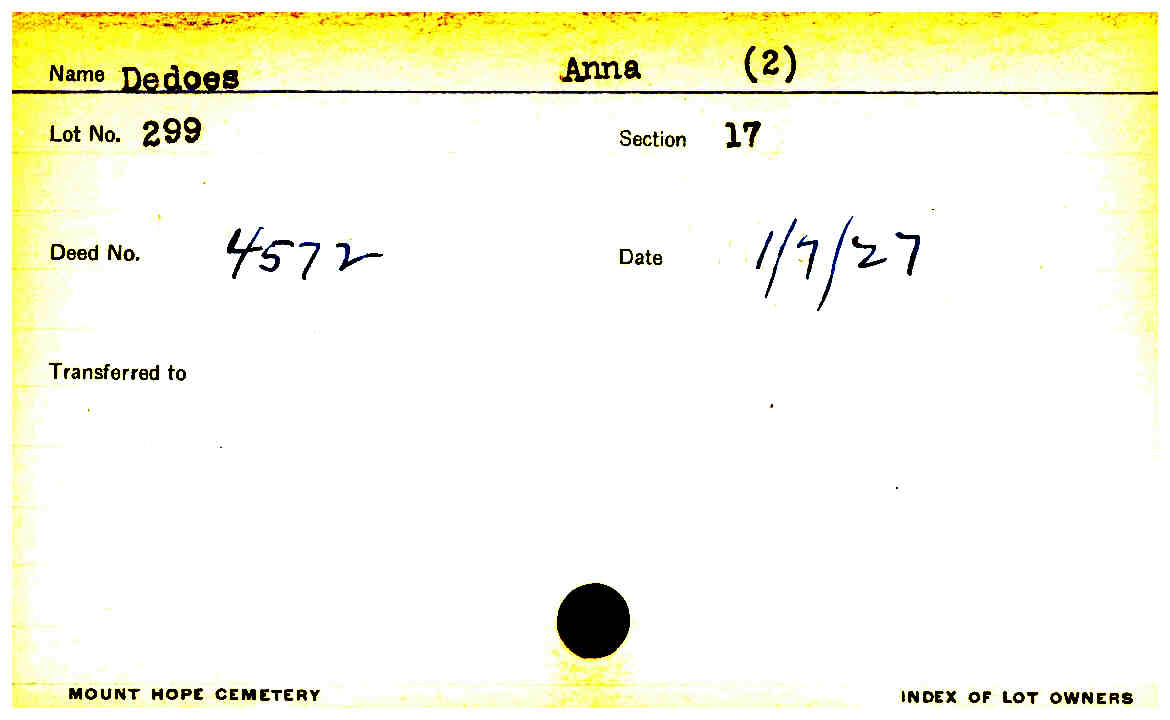 Name Dedoes Anna (2)
Lot No. 299 Section 17
Deed No. 4572 Date 1/7/27
Transferred to
MOUNT HOPE CEMETERY INDEX OF LOT OWNERS